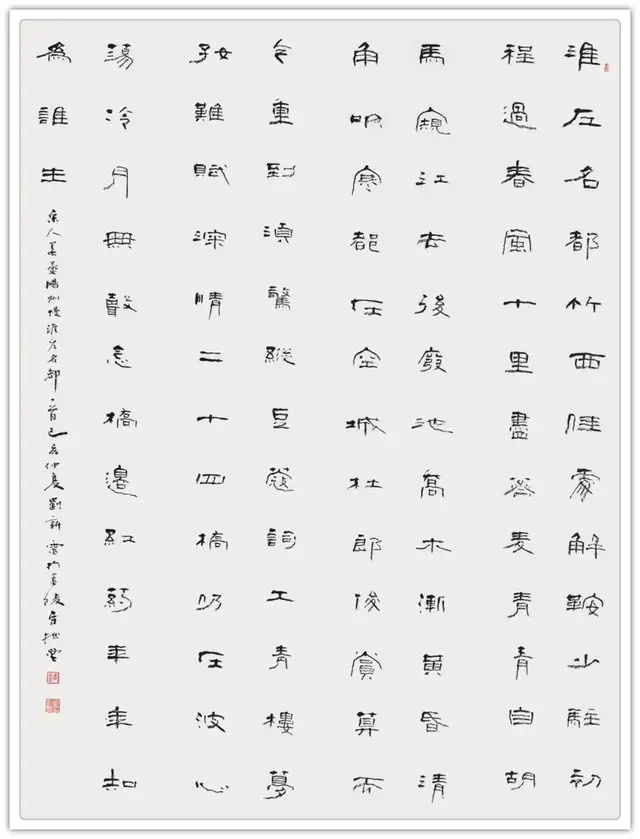 淮左名都竹西佳處解鞍少駐初
程過春風十里盡薺麦青青自胡
馬窺江去後廢池喬木漸黄昏清
角吹寒都在空城杜郎俊賞算而
今重到須驚縱豆蔻詞工青樓夢
好難賦深情二十四橋仍在波心
蕩冷月無聲念橋邊紅药年年知
為誰生
宋人姜夔揚州慢淮左名都一首己亥仲夏劉新